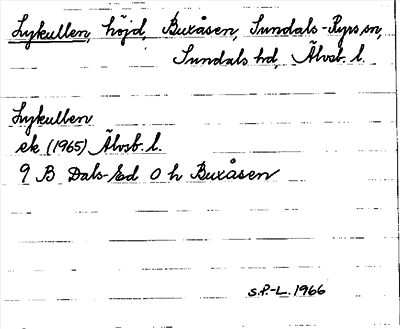 Lykullen, höjd, Buxåsen, Sundals-Ryrs sn,
Sundals hd, Älvsb. l.
Lykullen
ek (1965) Älvsb. l.
9 B Dals-Ed 0 h Buxåsen
S.P.-L. 1966